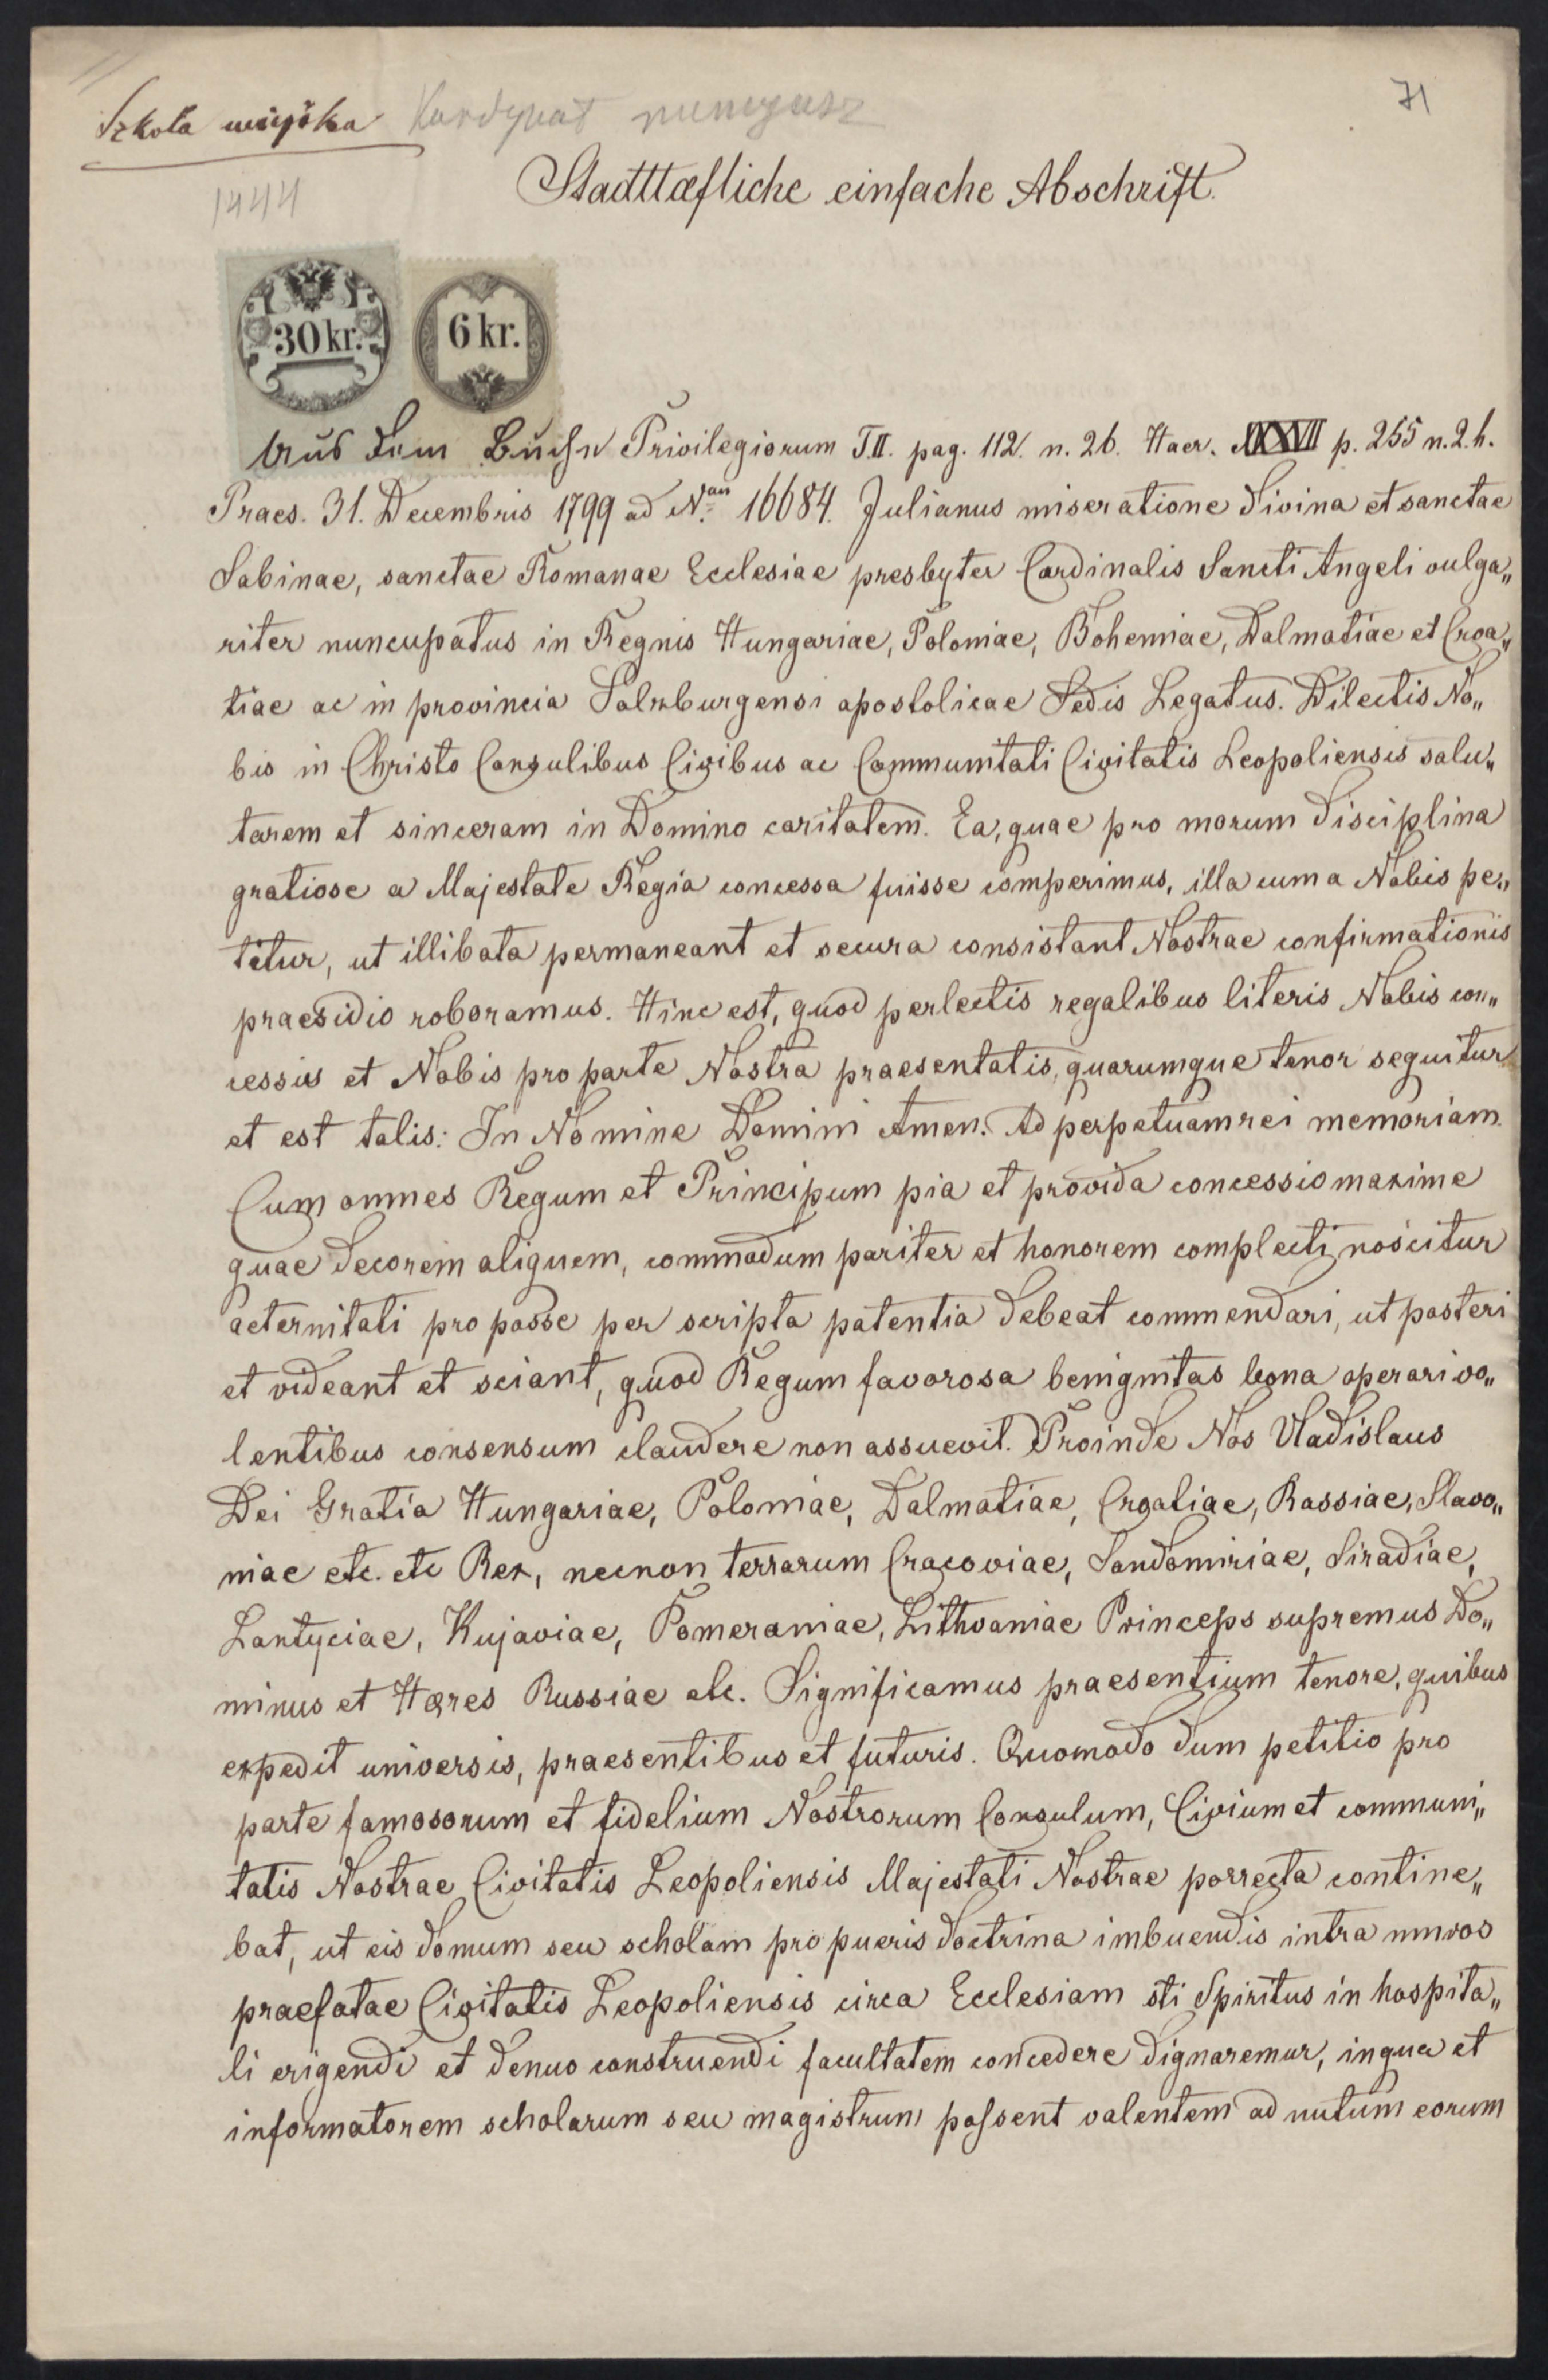 Szkoła miejska Kardynał nuncyusz
71
1444
Stadttæfliche einfache Abschrift.
30 kr. 6 kr.
Aus dem Buche Privilegiorum T.II. pag. 112. n. 26. Haer. XXXVII p. 255 n. 2. h.
Praes. 31. Decembris 1799 ad N.um 16684. Julianus miseratione divina et sanctae
Sabinae, sanctae Romanae Ecclesiae presbyter Cardinalis Sancti Angeli vulga„
riter nuncupatus in Regnis Hungariae, Poloniae, Bohemiae, Dalmatiae et Croa„
tiae ac in provincia Salzburgensi apostolicae Sedis Legatus. Dilectis No„
bis in Christo Consulibus Civibus ac Communitati Civitatis Leopoliensis salu„
tarem et sinceram in Domino caritatem. Ea, quae pro morum disciplina
gratiose a Majestate Regia concessa fuisse comperimus, illa cum a Nobis pe„
titur, ut illibata permaneant et secura consistant Nostrae confirmationis
praesidio roboramus. Hinc est, quod perlectis regalibus literis Nobis con„
cessis et Nobis pro parte Nostra praesentatis, quarumque tenor sequitur
et est talis: In Nomine Domini Amen. Ad perpetuam rei memoriam.
Cum omnes Regum et Principum pia et provida concessio maxime
quae decorem aliquem, commodum pariter et honorem complecti noscitur
aeternitati pro posse per scripta patentia debeat commendari, ut posteri
et videant et sciant, quod Regum favorosa benignitas bona operari vo„
lentibus consensum claudere non assuevit. Proinde Nos Vladislaus
Dei Gratia Hungariae, Poloniae, Dalmatiae, Croatiae, Rassiae, Slavo„
niae etc. etc Rex, necnon terrarum Cracoviae, Sandomiriae, Siradiae,
Lantyciae, Kujaviae, Pomeraniae, Lithvaniae Princeps supremus Do„
minus et Hæres Russiae etc. Significamus praesentium tenore, quibus
expedit universis, praesentibus et futuris. Quomodo dum petitio pro
parte famosorum et fidelium Nostrorum Consulum, Civium et communi„
tatis Nostrae Civitatis Leopoliensis Majestati Nostrae porrecta contine„
bat, ut eis domum seu scholam pro pueris doctrina imbuendis intra muros
praefatae Civitatis Leopoliensis circa Ecclesiam sti Spiritus in hospita„
li erigendi et denuo construendi facultatem concedere dignaremur, in qua et
informatorem scholarum seu magistrum possent valentem ad nutum eorum